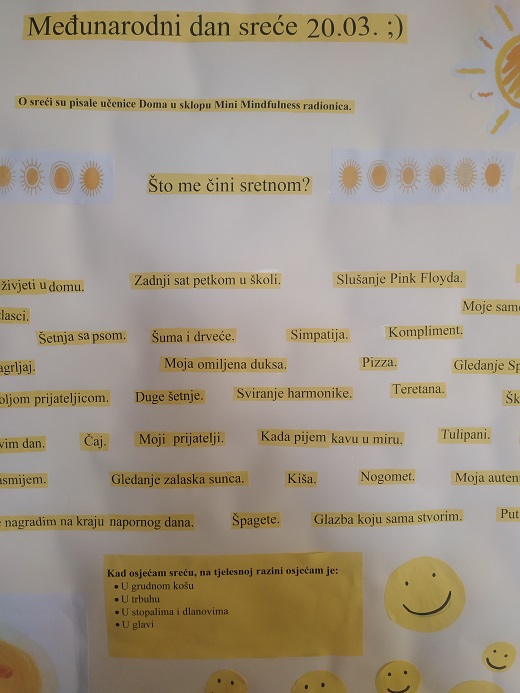 Međunarodni dan sreće 20.03. ;)
O sreći su pisale učenice Doma u sklopu Mini Mindfulness radionica.
Što me čini sretnom?
živjeti u domu. Zadnji sat petkom u školi. Slušanje Pink Floyda.
Moje
Šetnja sa psom. Šuma i drveće. Simpatija. Kompliment.
Moja omiljena duksa. Pizza. Gledanje
prijateljicom. Duge šetnje. Sviranje harmonike. Teretana.
dan. Čaj. Moji prijatelji. Kada pijem kavu u miru. Tulipani.
Gledanje zalaska sunca. Kiša. Nogomet. Moja
nagradim na kraju napornog dana. Špagete. Glazba koju sama stvorim.
Kad osjećam sreću, na tjelesnoj razini osjećam je:
• U grudnom košu
• U trbuhu
• U stopalima i dlanovima
• U glavi